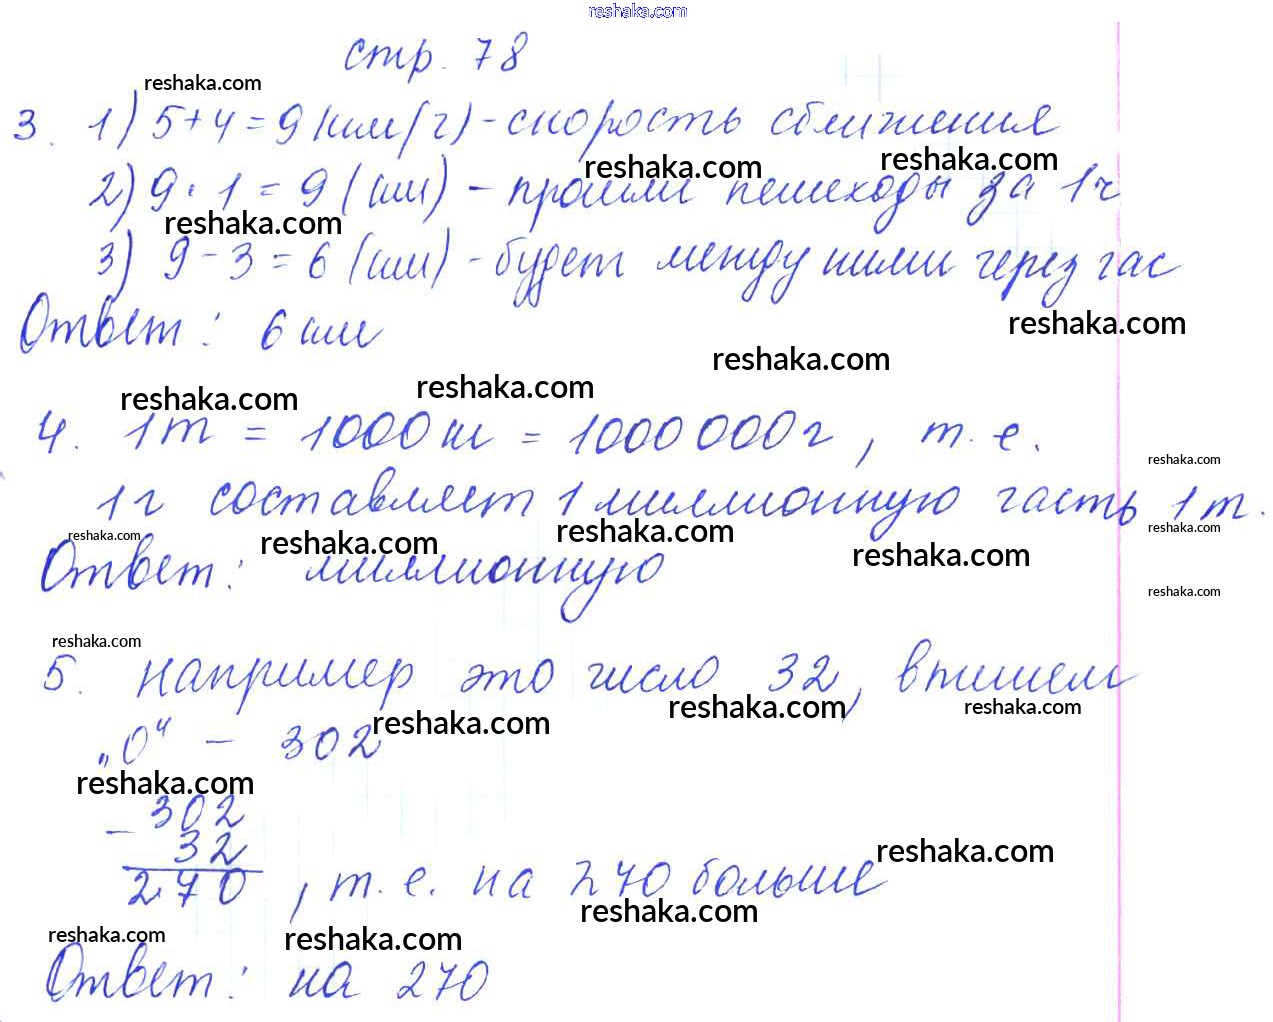 reshaka.com
стр. 78
reshaka.com
3. 1) 5+4=9 (км/ч) - скорость сближения
reshaka.com reshaka.com
2) 9·1=9 (км) - прошли пешеходы за 1ч
reshaka.com
3) 9-3=6 (км) - будет между ними через час
Ответ: 6 км
reshaka.com
reshaka.com
reshaka.com reshaka.com
4. 1т = 1000 кг = 1000 000 г, т. е.
reshaka.com
1г составляет 1 миллионную часть 1т.
reshaka.com reshaka.com reshaka.com reshaka.com reshaka.com
Ответ: миллионную
reshaka.com
reshaka.com
5. Например это число 32, впишем
reshaka.com reshaka.com reshaka.com
„0" - 302
reshaka.com
- 302
32
reshaka.com
270, т. е. на 270 больше
reshaka.com
reshaka.com reshaka.com
Ответ: на 270